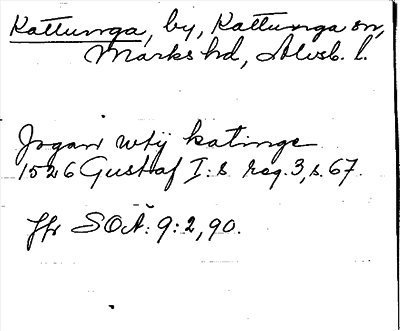 Kattunga, by, Kattunga sn,
Marks hd, Älvsb. l.
Jogan wtij katinge
1526 Gustaf I:s reg. 3, s. 67.
Jfr SOÄ: 9:2, 90.